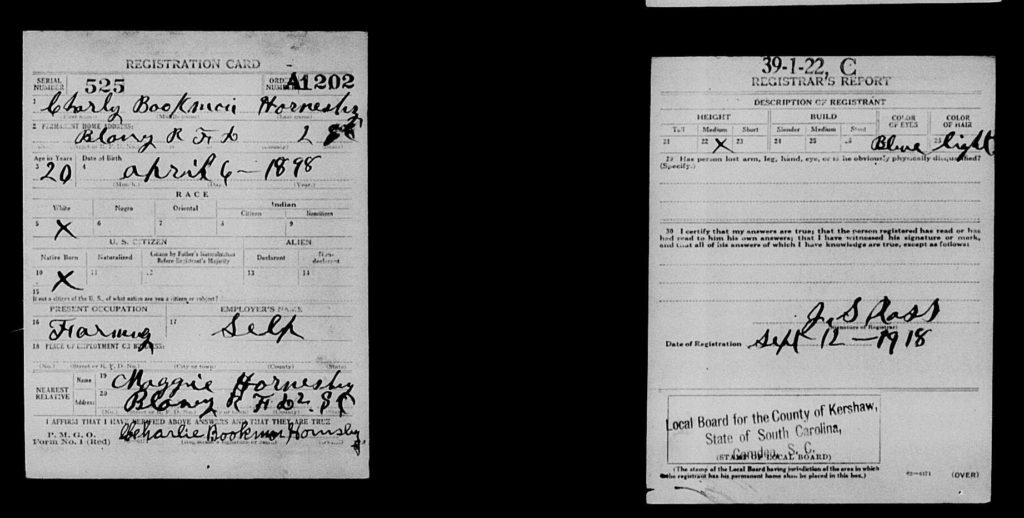 REGISTRATION CARD
SERIAL NUMBER 525 ORDER NUMBER A1202
1 Charly Bookman Hornesby
(First name) (Middle name) (Last name)
2 PERMANENT HOME ADDRESS:
Blany R F D 2 S C
Age in Years Date of Birth
3 20 4 april 6 - 1898
(Month.) (Day.) (Year.)
RACE
White Negro Oriental Indian
Citizen Noncitizen
5 X 6 7 8 9
U. S. CITIZEN ALIEN
Native Born Naturalized Citizen by Father's Naturalization Before Registrant's Majority Declarant Non-declarant
10 X 11 12 13 14
15
If not a citizen of the U. S., of what nation are you a citizen or subject?
PRESENT OCCUPATION EMPLOYER'S NAME
16 Farming 17 Self
18 PLACE OF EMPLOYMENT OR BUSINESS:
(No.) (Street or R. F. D. No.) (City or town) (County) (State)
NEAREST RELATIVE Name 19 Maggie Hornesby
Address 20 Blaney R F D 2 S C
I AFFIRM THAT I HAVE VERIFIED ABOVE ANSWERS AND THAT THEY ARE TRUE
P. M. G. O.
Form No. 1 (Red) Charlie Bookman Hornsby
39-1-22, C
REGISTRAR'S REPORT
DESCRIPTION OF REGISTRANT
HEIGHT BUILD COLOR OF EYES COLOR OF HAIR
Tall Medium Short Slender Medium Stout
21 22 X 23 24 25 26 Blue light
29 Has person lost arm, leg, hand, eye, or is he obviously physically disqualified?
(Specify.)
30 I certify that my answers are true; that the person registered has read or has
had read to him his own answers; that I have witnessed his signature or mark,
and that all of his answers of which I have knowledge are true, except as follows:
J. S Ross
(Signature of Registrar)
Date of Registration Sept 12 - 1918
Local Board for the County of Kershaw,
State of South Carolina,
Camden, S. C.
(STAMP OF LOCAL BOARD)
(The stamp of the Local Board having jurisdiction of the area in which
the registrant has his permanent home shall be placed in this box.)
(OVER)